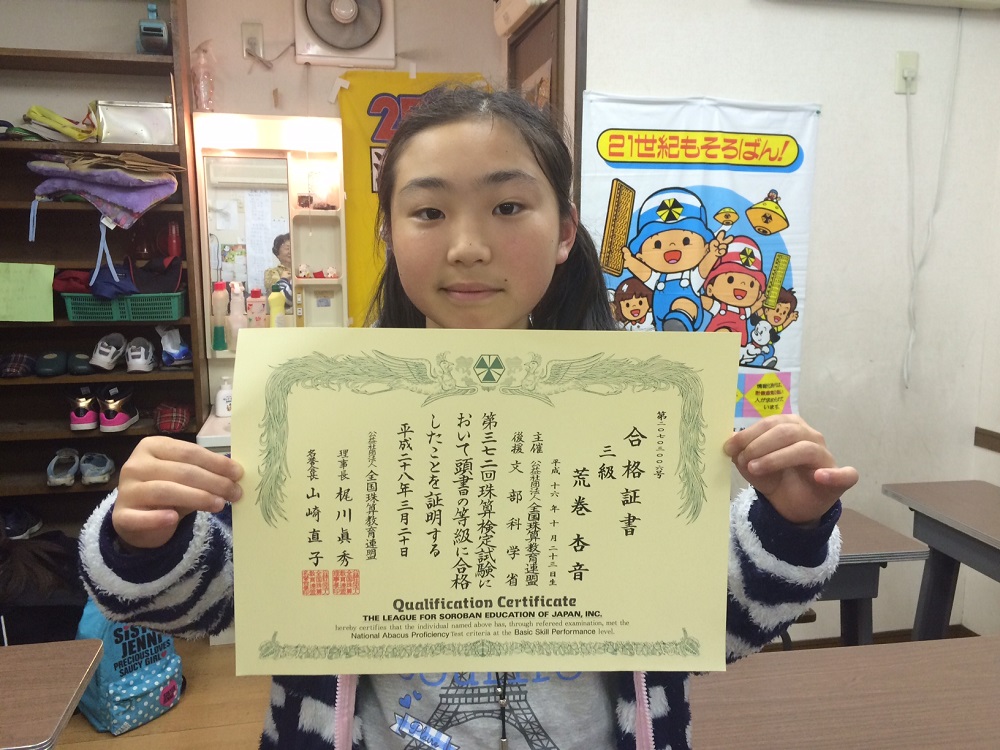 21世紀もそろばん!
第二〇七〇三〇〇六号
合格証書
三級
荒巻 杏音
平成 十六 年 十 月 二十三 日生
主催 公益社団法人 全国珠算教育連盟
後援 文部科学省
第三七二回珠算検定試験に
おいて頭書の等級に合格
したことを証明する
平成二十八年三月二十日
公益社団法人 全国珠算教育連盟
理事長 梶川眞秀
名誉会長 山崎直子
Qualification Certificate
THE LEAGUE FOR SOROBAN EDUCATION OF JAPAN, INC.
hereby certifies that the individual named above has, through refereed examination, met the
National Abacus Proficiency test criteria at the Basic Skill Performance level.
SISTER
JENNI
PRECIOUS LOVES
SAUCY GIRL